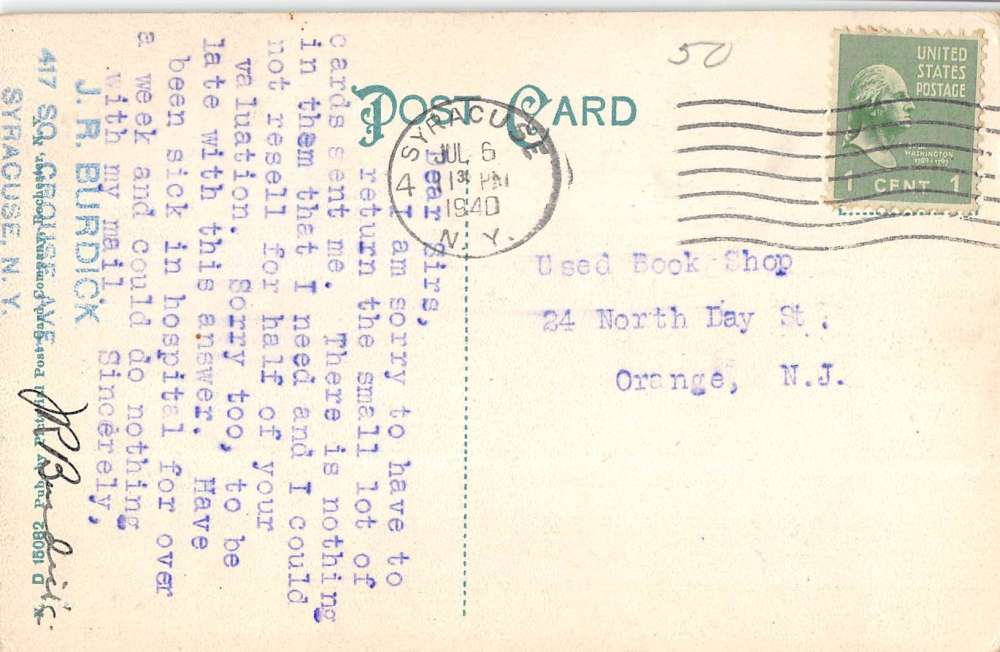 50
POST CARD
UNITED
STATES
POSTAGE
WASHINGTON
1 CENT 1
SYRACUSE
JUL 6
1940
N.Y.
4
Used Book Shop
24 North Day St.
Orange, N.J.
Dear Sirs,
I am sorry to have to
return the small lot of
cards sent me. There is nothing
in them that I need and I could
not resell for half of your
valuation. Sorry too, to be
late with this answer. Have
been sick in hospital for over
a week and could do nothing
with my mail Sincerely,
J. R. BURDICK
417 SO. CROUSE AVE
SYRACUSE, N. Y.
JR Burdick
D 15082 Pub. by Pictorial Post Card Company, Rochester, N.Y.